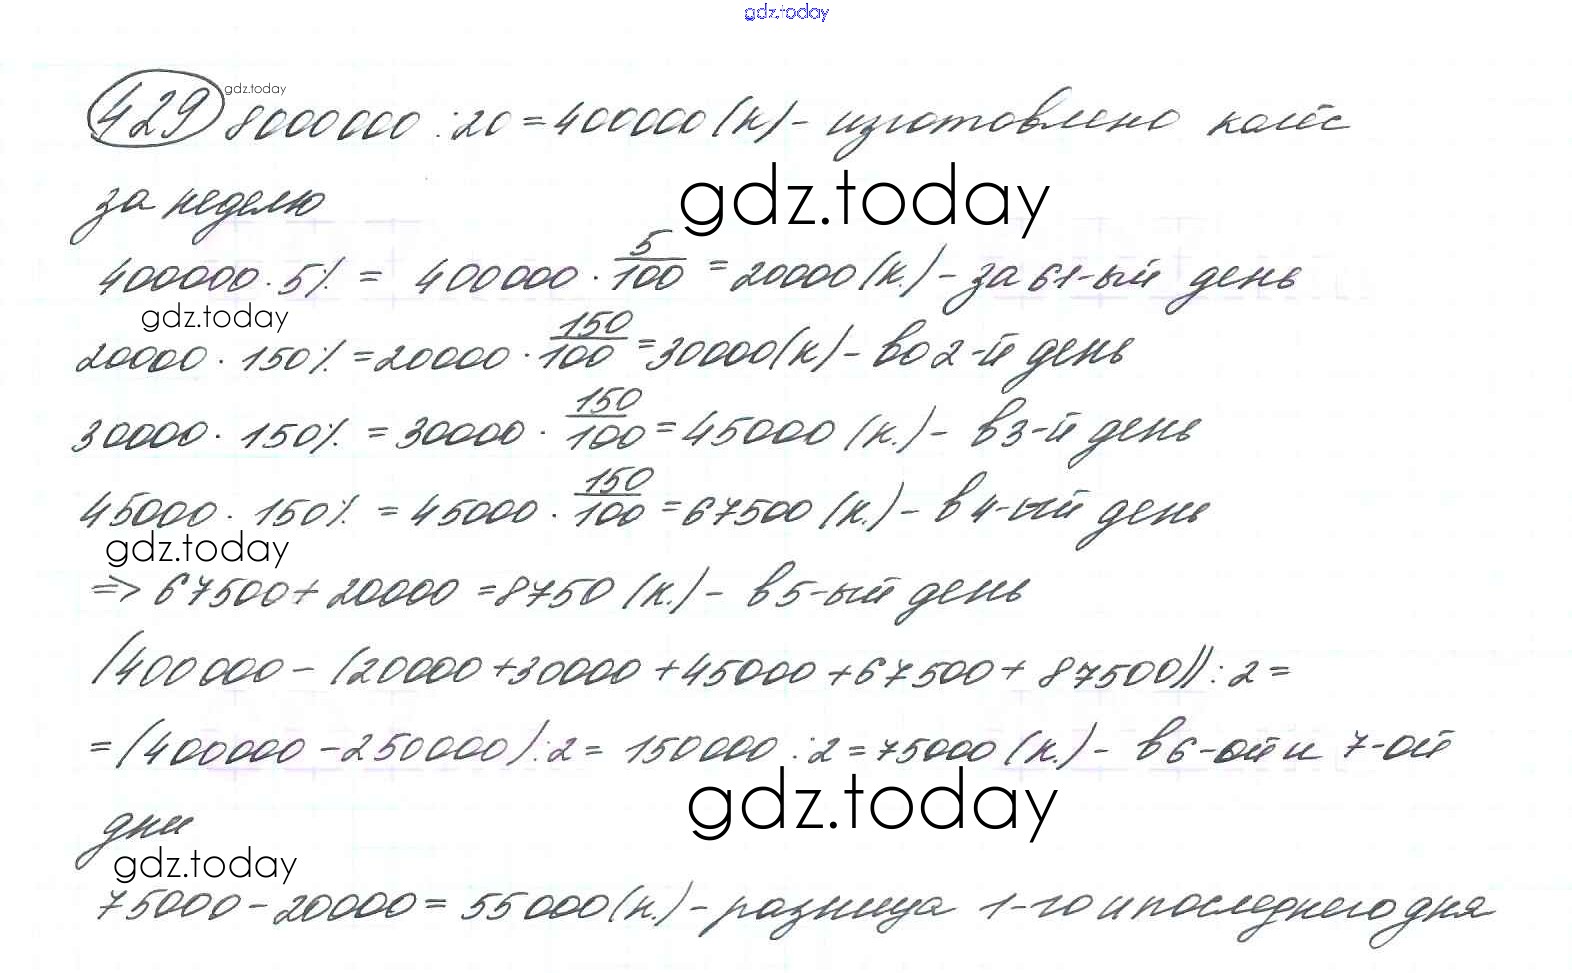 gdz.today
429 gdz.today 8000000 : 20 = 400000 (к) - изготовлено колёс
за неделю
gdz.today
400000 · 5% = 400000 · 5/100 = 20000 (к.) - за 61-ый день
gdz.today
20000 · 150% = 20000 · 150/100 = 30000 (к) - во 2-й день
30000 · 150% = 30000 · 150/100 = 45000 (к.) - в 3-й день
45000 · 150% = 45000 · 150/100 = 67500 (к.) - в 4-ый день
gdz.today
=> 67500 + 20000 = 8750 (к.) - в 5-ый день
(400000 - (20000 + 30000 + 45000 + 67500 + 87500)) : 2 =
= (400000 - 250000) : 2 = 150000 : 2 = 75000 (к.) - в 6-ой и 7-ой
gdz.today
дни
gdz.today
75000 - 20000 = 55000 (к.) - разница 1-го и последнего дня